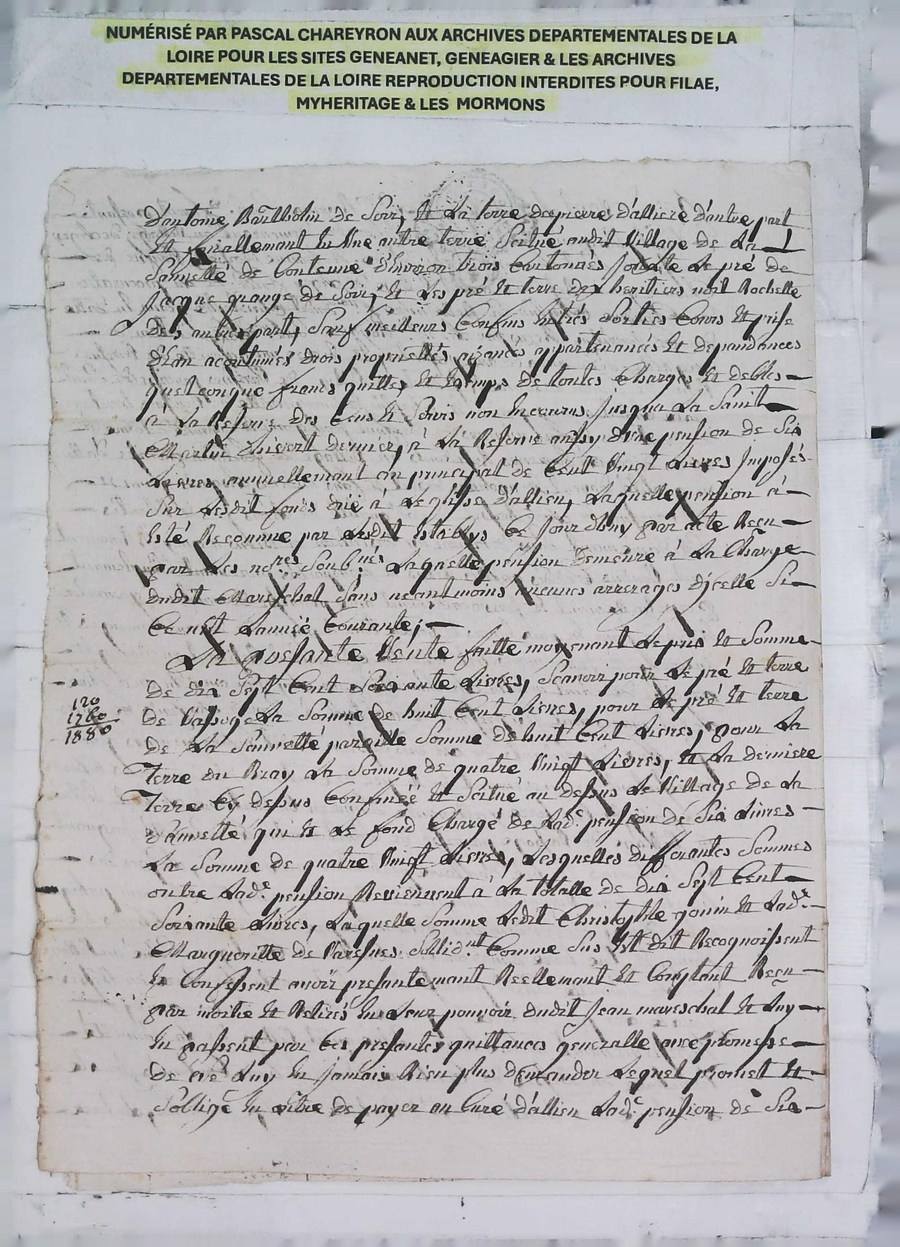 NUMÉRISÉ PAR PASCAL CHAREYRON AUX ARCHIVES DEPARTEMENTALES DE LA
LOIRE POUR LES SITES GENEANET, GENEAGIER & LES ARCHIVES
DEPARTEMENTALES DE LA LOIRE REPRODUCTION INTERDITES POUR FILAE,
MYHERITAGE & LES MORMONS
d'antoine Barthholin de Soir, Et La terre de pierre d'allier d'autre part
Et finallemant En Une autre terre Scitué audit Village de La
Sauvetté de Contenue d'Environ trois Cartonnés Joincte Le pré de
Jacque grange de Soir, Et Les pré Et terre des heritiers noit Rochelle
des autres part, Sauf meilleurs Confins Entrés Sorties Cours Et prise
d'Eau acoutumés drois proprietés aizancés appartenancés Et dependances
quelconque francs quittes Et Exemps de toutes Charges Et debtes
à La Reserve des Cens Et Servis non Encourus Jusqua La Saint
Martin d'hivert dernier, à La Reserve aussy d'une pension de Six
Livres annuellemant au principal de Cent Vingt Livres Imposés
Sur Lesdit fonds düe à Leglise d'allieu, Laquelle pension à
Esté Reconnue par Lesdit Establys Ce Jourdhuy par acte Reçu
par Les nores Soubnés Laquelle pension demeure à La Charge
dudit Mareschal Sans neantmoins aucuns arrerages d'jcelle Si
Ce n'est L'année Courante;
La presante Vente faitte moyenant Le prix Et Somme
de dix Sept Cent Soixante Livres, Scavoir pour Le pré Et terre
120
1760
1880
de La Somme de huit Cent Livres, pour Le pré Et terre
de La Sauvetté pareille Somme de huit Cent Livres, pour La
Terre du Bray La Somme de quatre Vingt Livres, Et La derniere
Terre Cy dessus Confinée Et Scitué au dessus Le Village de La
Sauvetté qui Et Le fond Chargé de Lad. pension de Six Livres
La Somme de quatre Vingt Livres, Lesquelles differantes Sommes
outre Lade. pension Reviennent à La totalle de dix Sept Cent
Soixante Livres, Laquelle Somme Ledit Christophle gonin Et Lade.
Margueritte de Varesnes Sollidnt. Comme Sus Est dit Recognoissent
Et Confessent avoir presantemant Reellemant Et Comptant Reçu
par moitié Et Retirés En Leur pouvoir dudit Jean mareschal Et Luy
En passent par Ces presantes quittances generalle avec promesse
de Luy En Jamais Rien plus demander Lequel promet Et
S'oblige En oûtre de payer au Curé d'allieu Lade. pension de Six